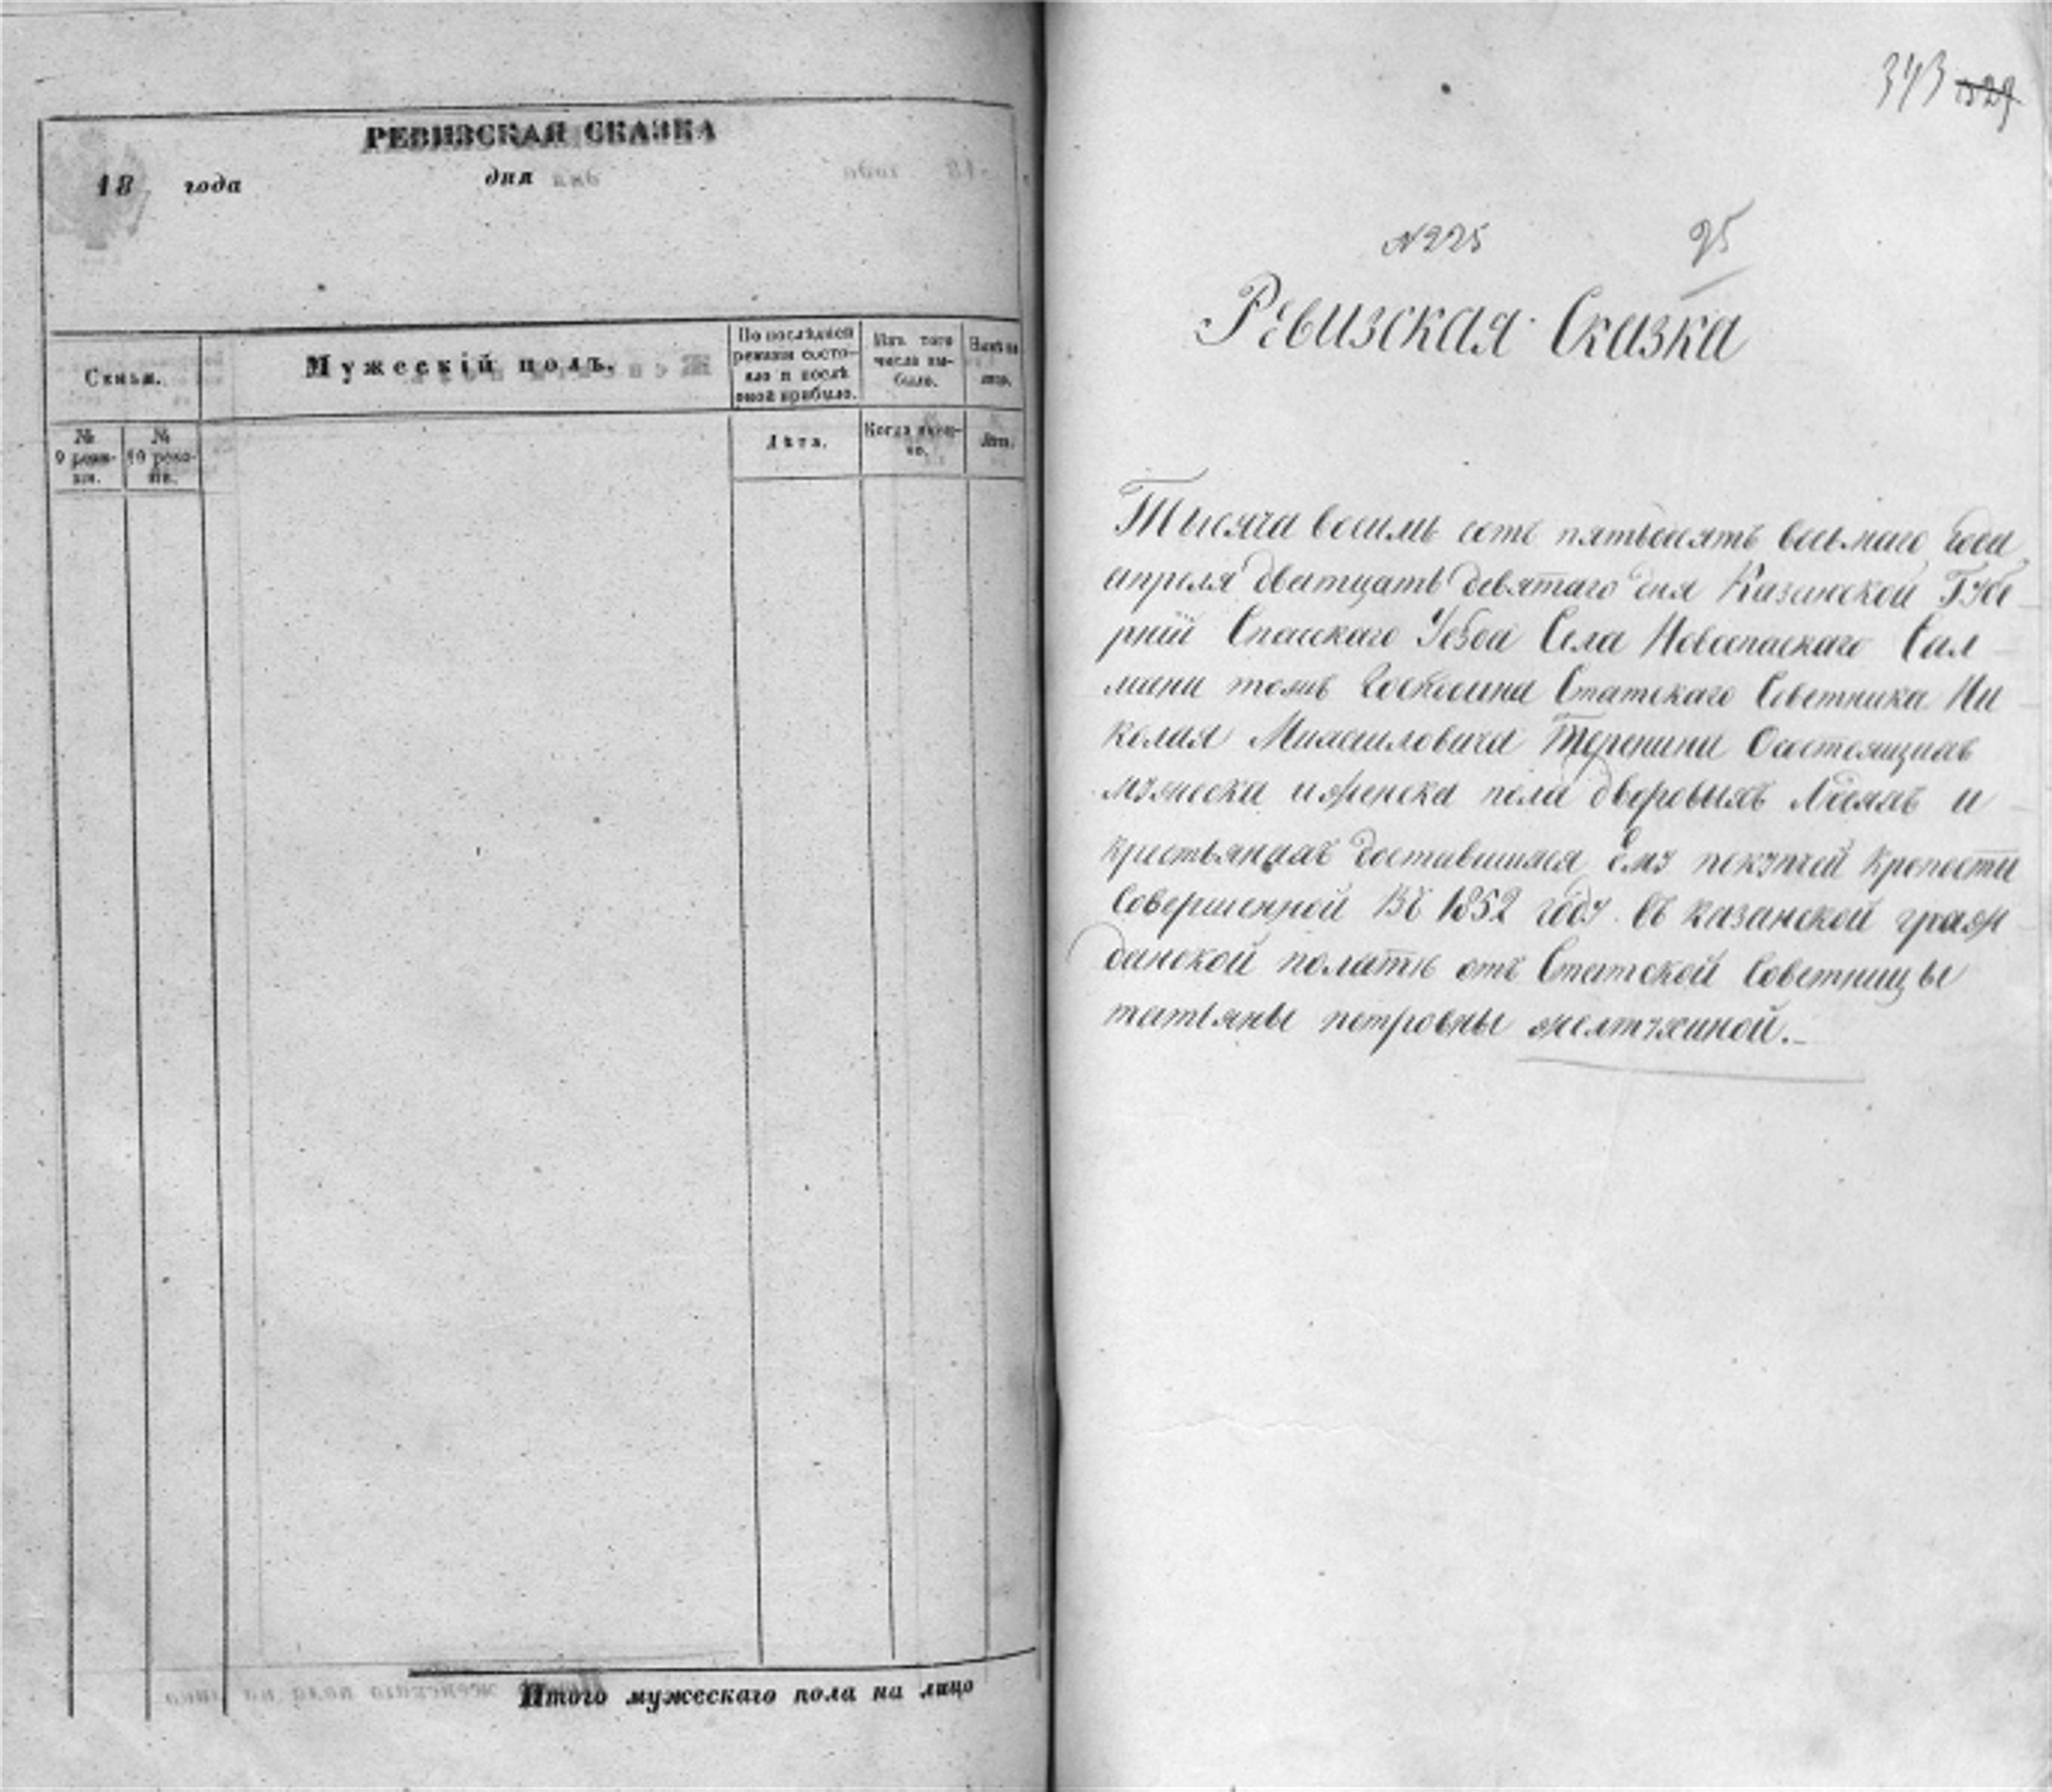 РЕВИЗСКАЯ СКАЗКА
18 года дня
Семьи.
Мужескій полъ.
По послѣдней ревизіи состояло и послѣ оной прибыло.
Изъ того числа выбыло.
Нынѣ на лицо.
№ 9 ревизіи.
№ 10 ревизіи.
Лѣта.
Когда именно.
Лѣта.
Итого мужескаго пола на лицо
343 1329
№225 95
Ревизская Сказка
Тысяча восимь сотъ пятьдесятъ восьмаго года
апреля дватцать девятаго дня Казанской Губе
рніи Спаскаго Уезда Села Новоспаскаго Сал
мани тожъ Господина Статскаго Советника Ни
колая Михаиловича Теренина Осостоящихъ
мужеска и женска пола дворовыхъ Людяхъ и
крестьянахъ доставшихся Ему покупчей крепости
Совершенной Въ 1852 году въ казанской граж
данской полате отъ Статской Советницы
татьяны петровны желтухиной.